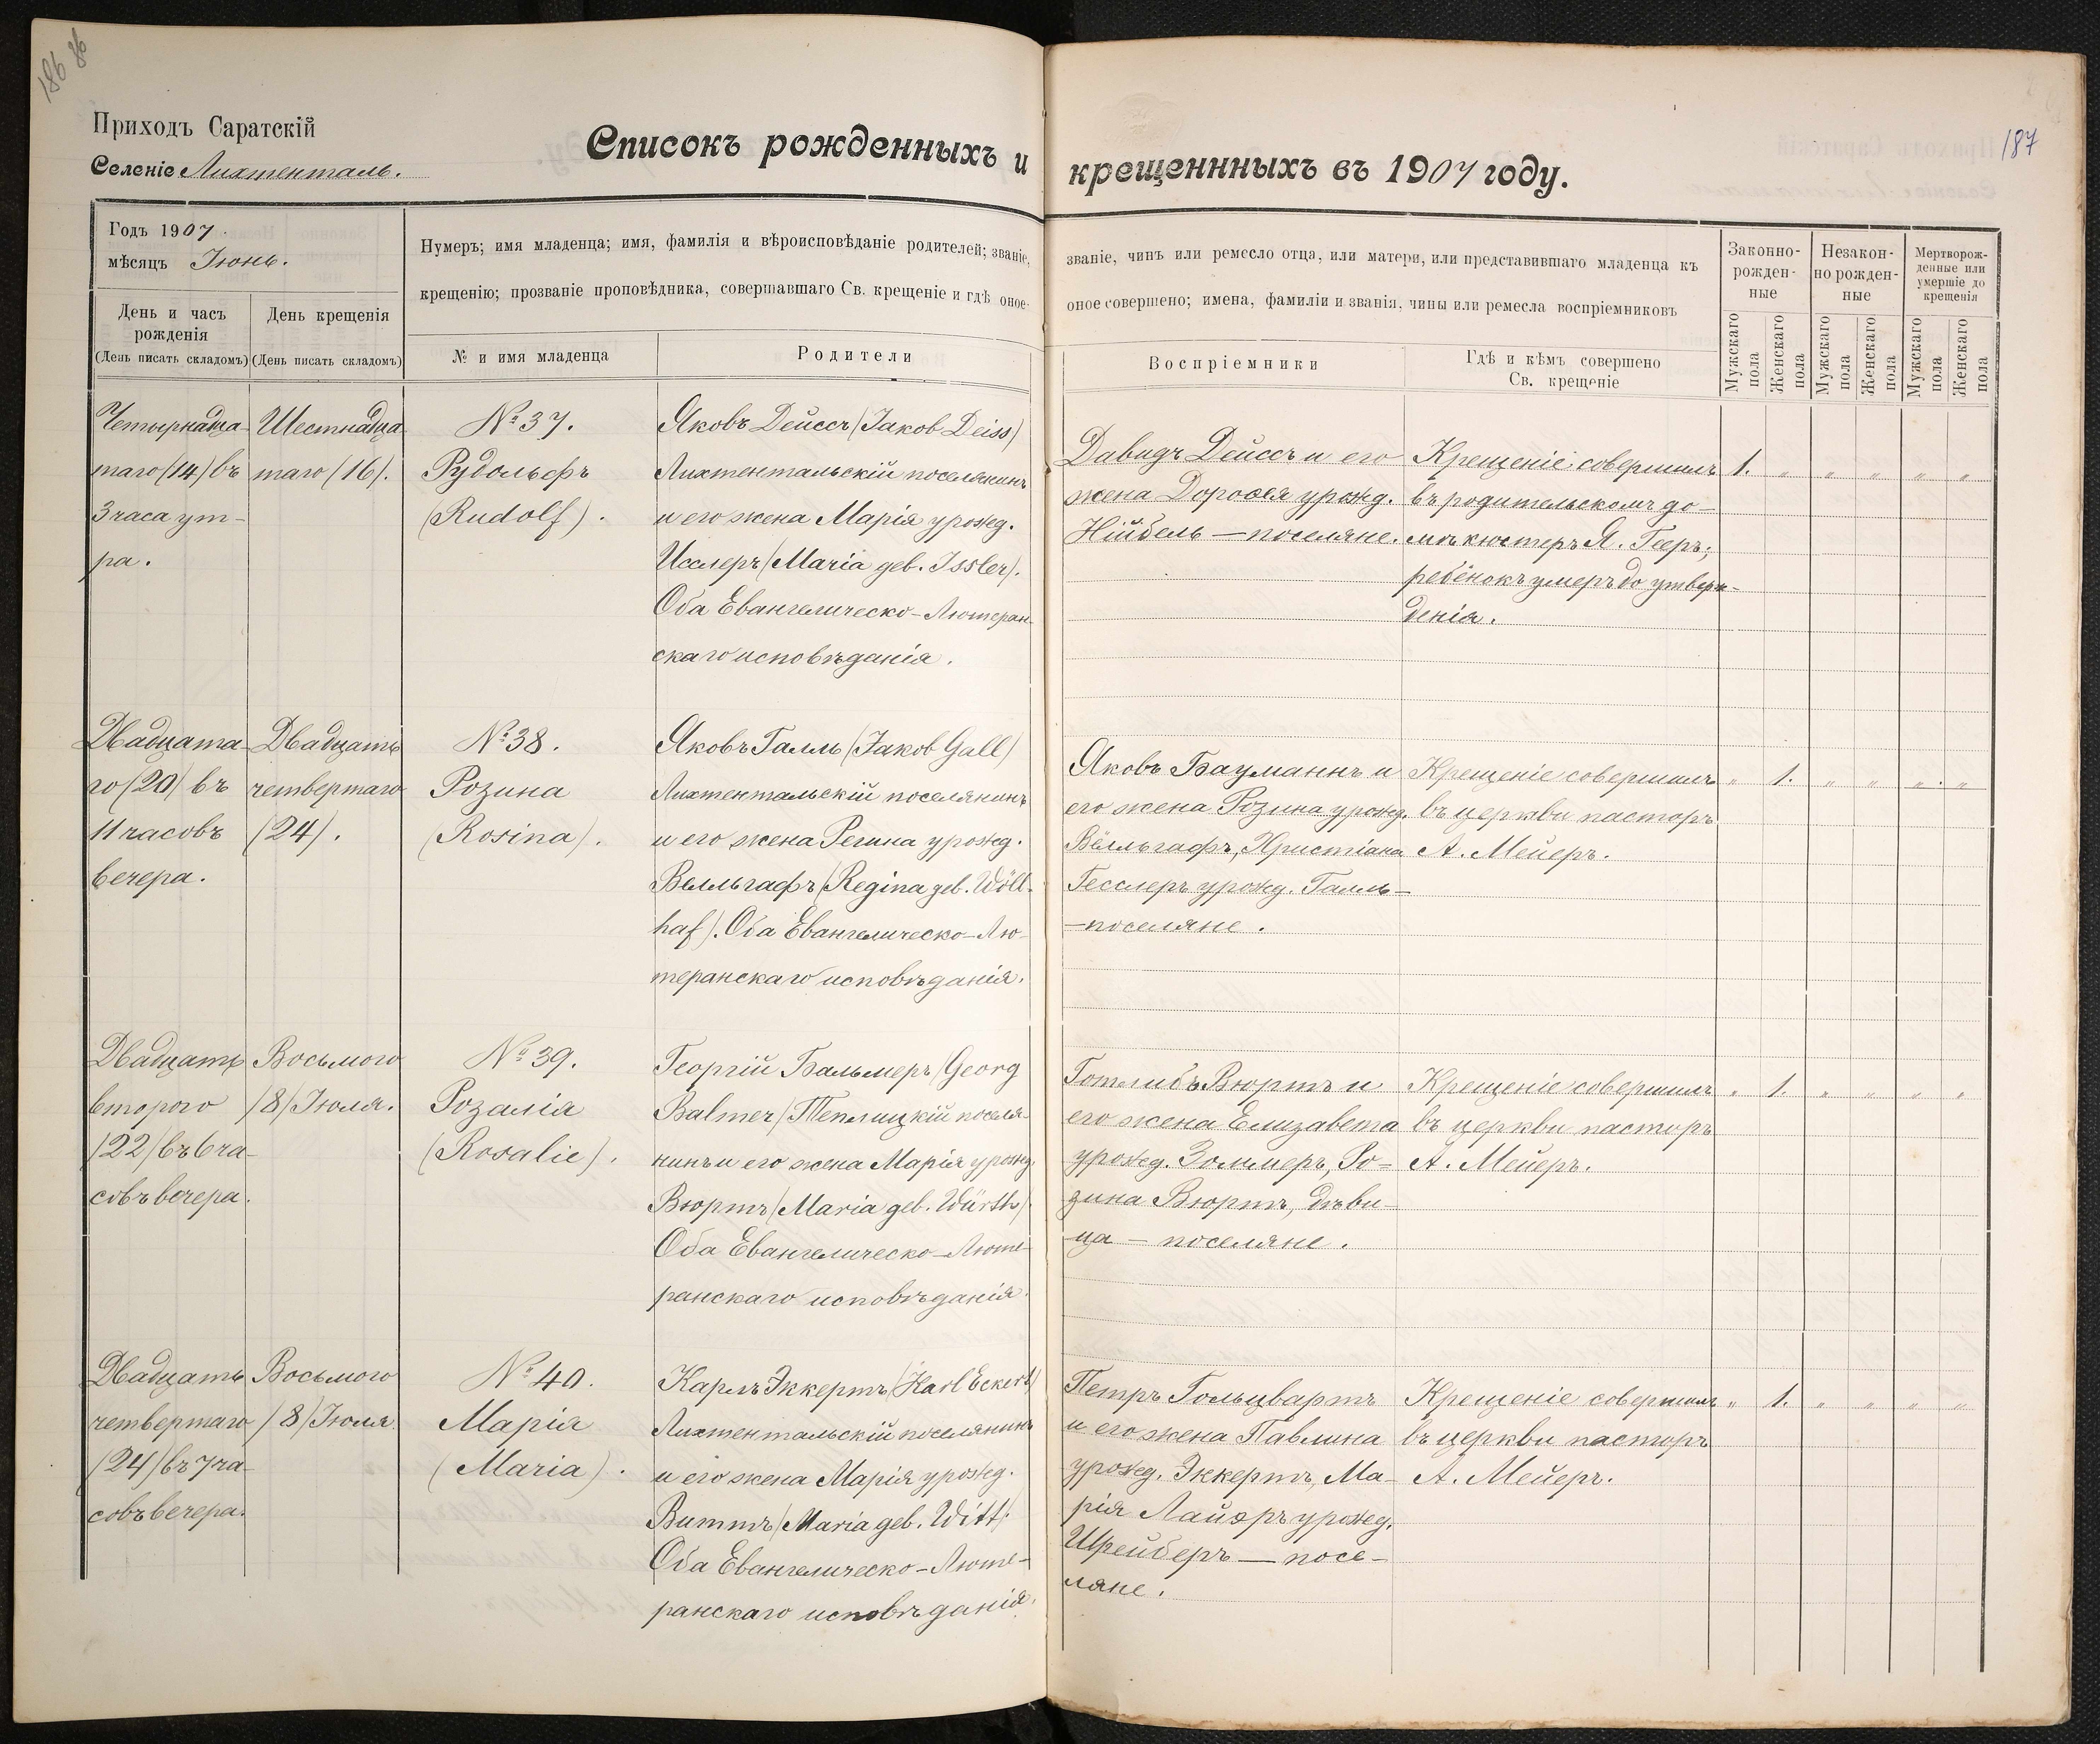 186 86
Приходъ Саратскій
Селеніе Лихтенталь.
Списокъ рожденныхъ и крещеннныхъ въ 1907 году.
187
Годъ 1907.
мѣсяцъ Іюнь.
День и часъ
рожденія
(День писать складомъ)
День крещенія
(День писать складомъ)
Нумеръ; имя младенца; имя, фамилія и вѣроисповѣданіе родителей; званіе,
крещенію; прозваніе проповѣдника, совершавшаго Св. крещеніе и гдѣ оное
№ и имя младенца
Родители
званіе, чинъ или ремесло отца, или матери, или представившаго младенца къ
оное совершено; имена, фамиліи и званія, чины или ремесла воспріемниковъ
Воспріемники
Гдѣ и кѣмъ совершено
Св. крещеніе
Законно-
рожден-
ные
Незакон-
но рожден-
ные
Мертворож-
денные или
умершіе до
крещенія
Мужскаго
пола
Женскаго
пола
Мужскаго
пола
Женскаго
пола
Мужскаго
пола
Женскаго
пола
Четырнадца-
таго (14) въ
3 часа ут-
ра.
Шестнадца-
таго (16).
№ 37.
Рудольфъ
(Rudolf).
Яковъ Дейссъ (Jakob Deiss)
Лихтентальскій поселянинъ
и его жена Марія урожд.
Исслеръ (Maria geb. Issler).
Оба Евангелическо-Лютеран-
скаго исповѣданія.
Давидъ Дейссъ и его
жена Доровея урожд.
Нійбель — поселяне.
Крещеніе совершилъ
въ родительскомъ до-
мѣ кюстеръ Я. Геръ;
ребёнокъ умеръ до утверж-
денія.
1. „ „ „ „ „
Двадцата-
го (20) въ
11 часовъ
вечера.
Двадцать
четвертаго
(24).
№ 38.
Розина
(Rosina).
Яковъ Галль (Jakob Gall)
Лихтентальскій поселянинъ
и его жена Регина урожд.
Вельгафъ (Regina geb. Wöll-
haf). Оба Евангелическо-Лю-
теранскаго исповѣданія.
Яковъ Бауманнъ и
его жена Розина урожд.
Вёльгафъ, Христіана
Гесслеръ урожд. Галль —
— поселяне.
Крещеніе совершилъ
въ церкви пасторъ
А. Мейеръ.
„ 1. „ „ „ „
Двадцать
второго
(22) въ 6 ча-
совъ вечера.
Восьмого
(8) Іюля.
№ 39.
Розалія
(Rosalie).
Георгій Бальмеръ (Georg
Balmer) Теплицкій поселя-
нинъ и его жена Марія урожд.
Вюртъ (Maria geb. Würth).
Оба Евангелическо-Люте-
ранскаго исповѣданія.
Готлибъ Вюртъ и
его жена Елизавета
урожд. Золлмеръ, Ро-
зина Вюртъ, дѣви-
ца — поселяне.
Крещеніе совершилъ
въ церкви пасторъ
А. Мейеръ.
„ 1. „ „ „ „
Двадцать
четвертаго
(24) въ 7 ча-
совъ вечера.
Восьмого
(8) Іюля.
№ 40.
Марія
(Maria).
Карлъ Эккертъ (Karl Eckert)
Лихтентальскій поселянинъ
и его жена Марія урожд.
Виттъ (Maria geb. Witt).
Оба Евангелическо-Люте-
ранскаго исповѣданія.
Петръ Гольцвартъ
и его жена Павлина
урожд. Эккертъ, Ма-
рія Лайэръ урожд.
Шрейберъ — посе-
ляне.
Крещеніе совершилъ
въ церкви пасторъ
А. Мейеръ.
„ 1. „ „ „ „